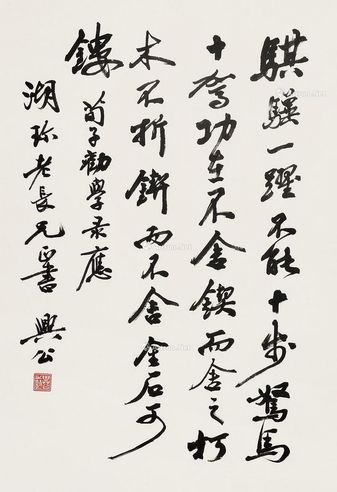 骐骥一躍不能十步驽馬
十驾功在不舍锲而舍之朽
木不折锲而不舍金石可
鏤 荀子勸學录應
湖珍老長兄 興公